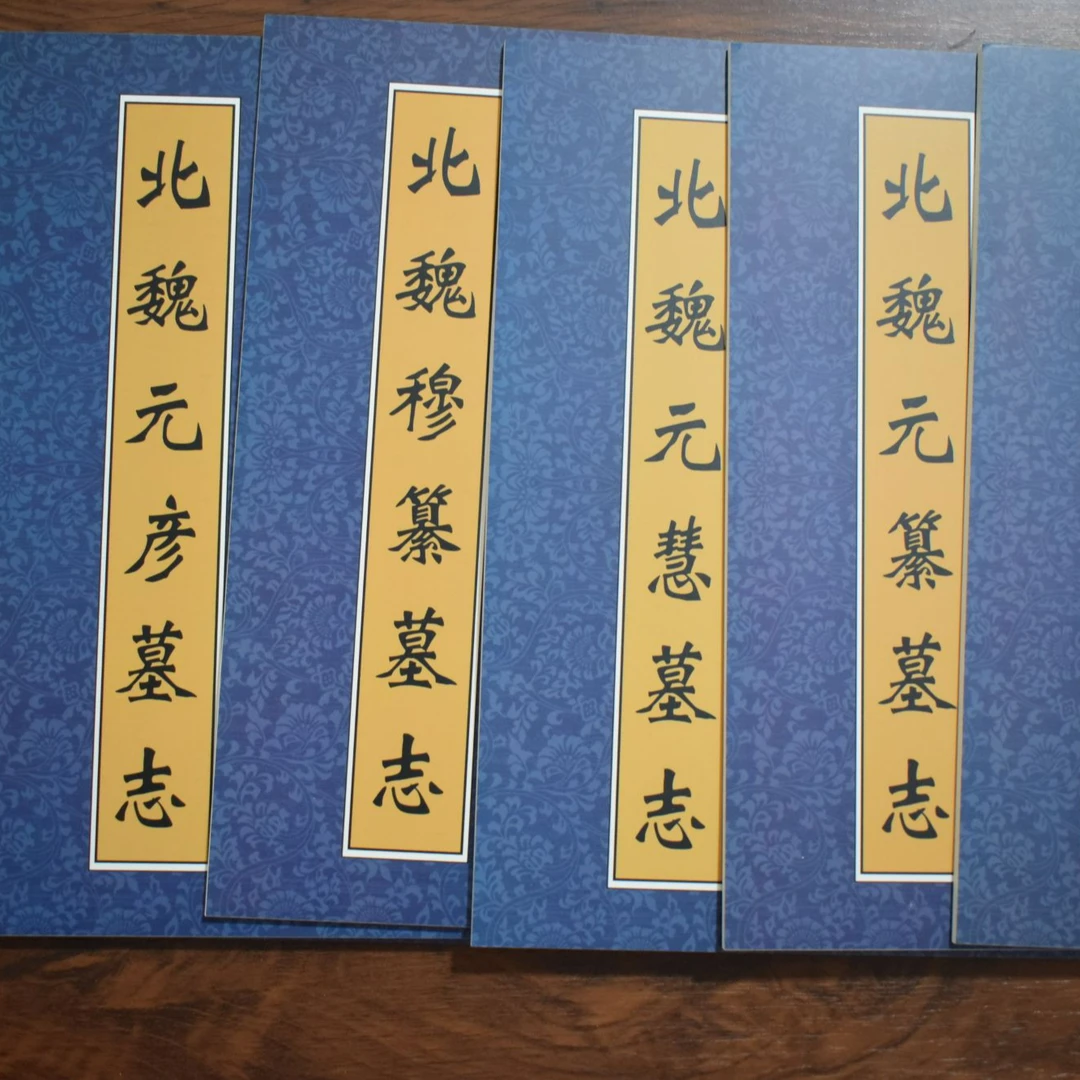 北魏元彦墓志
北魏穆纂墓志
北魏元慧墓志
北魏元纂墓志